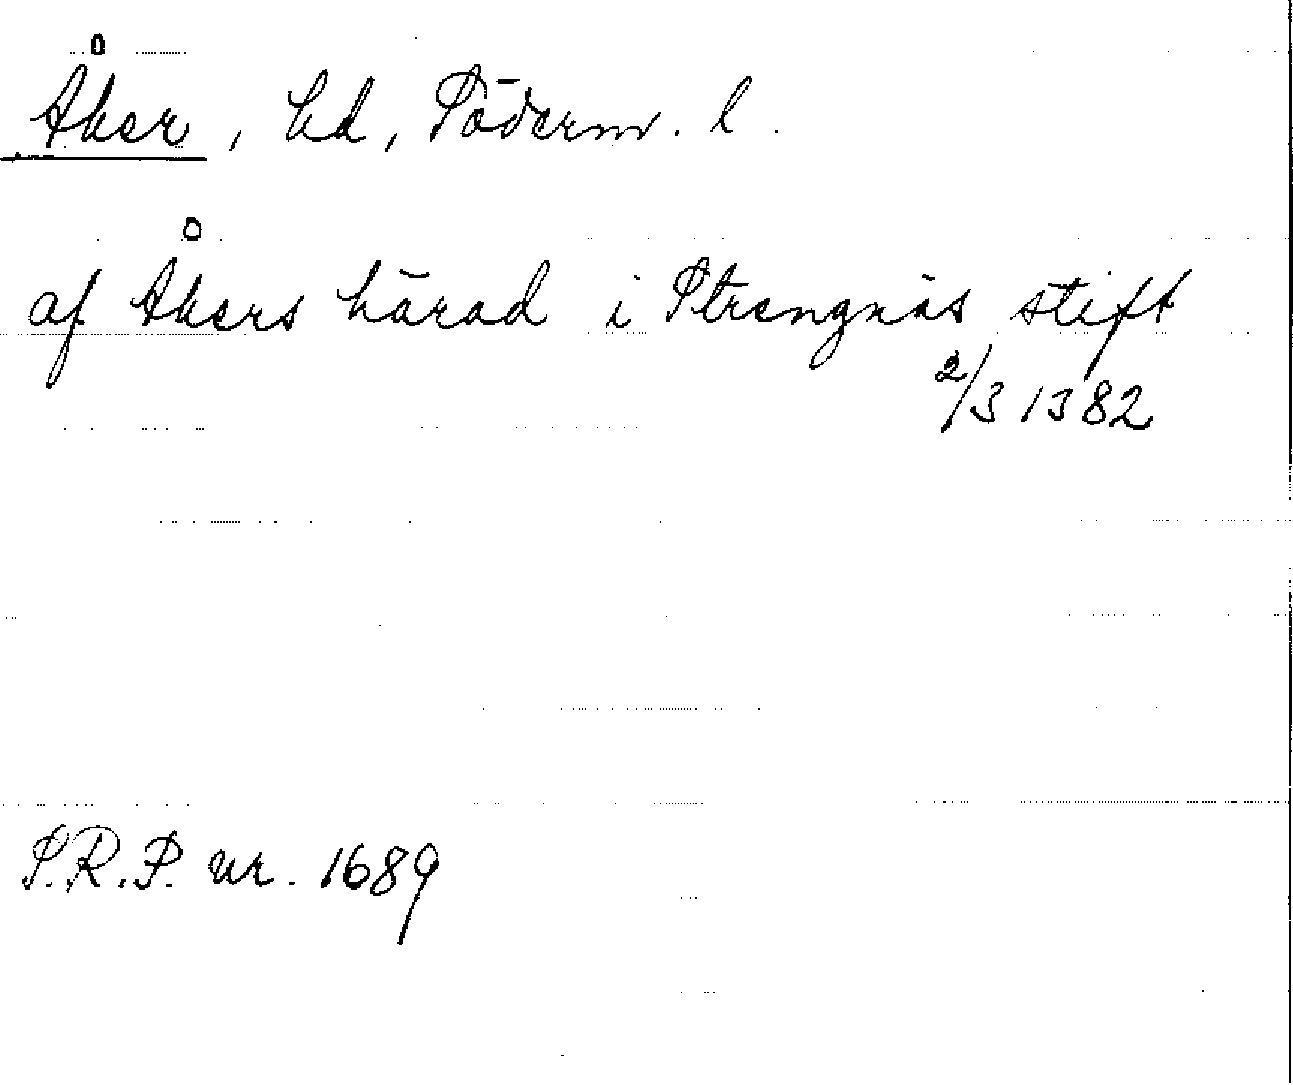 Åker, hd, Söderm. l.
af Åkers härad i Strengnäs stift
2/3 1382
S.R.P. nr. 1689